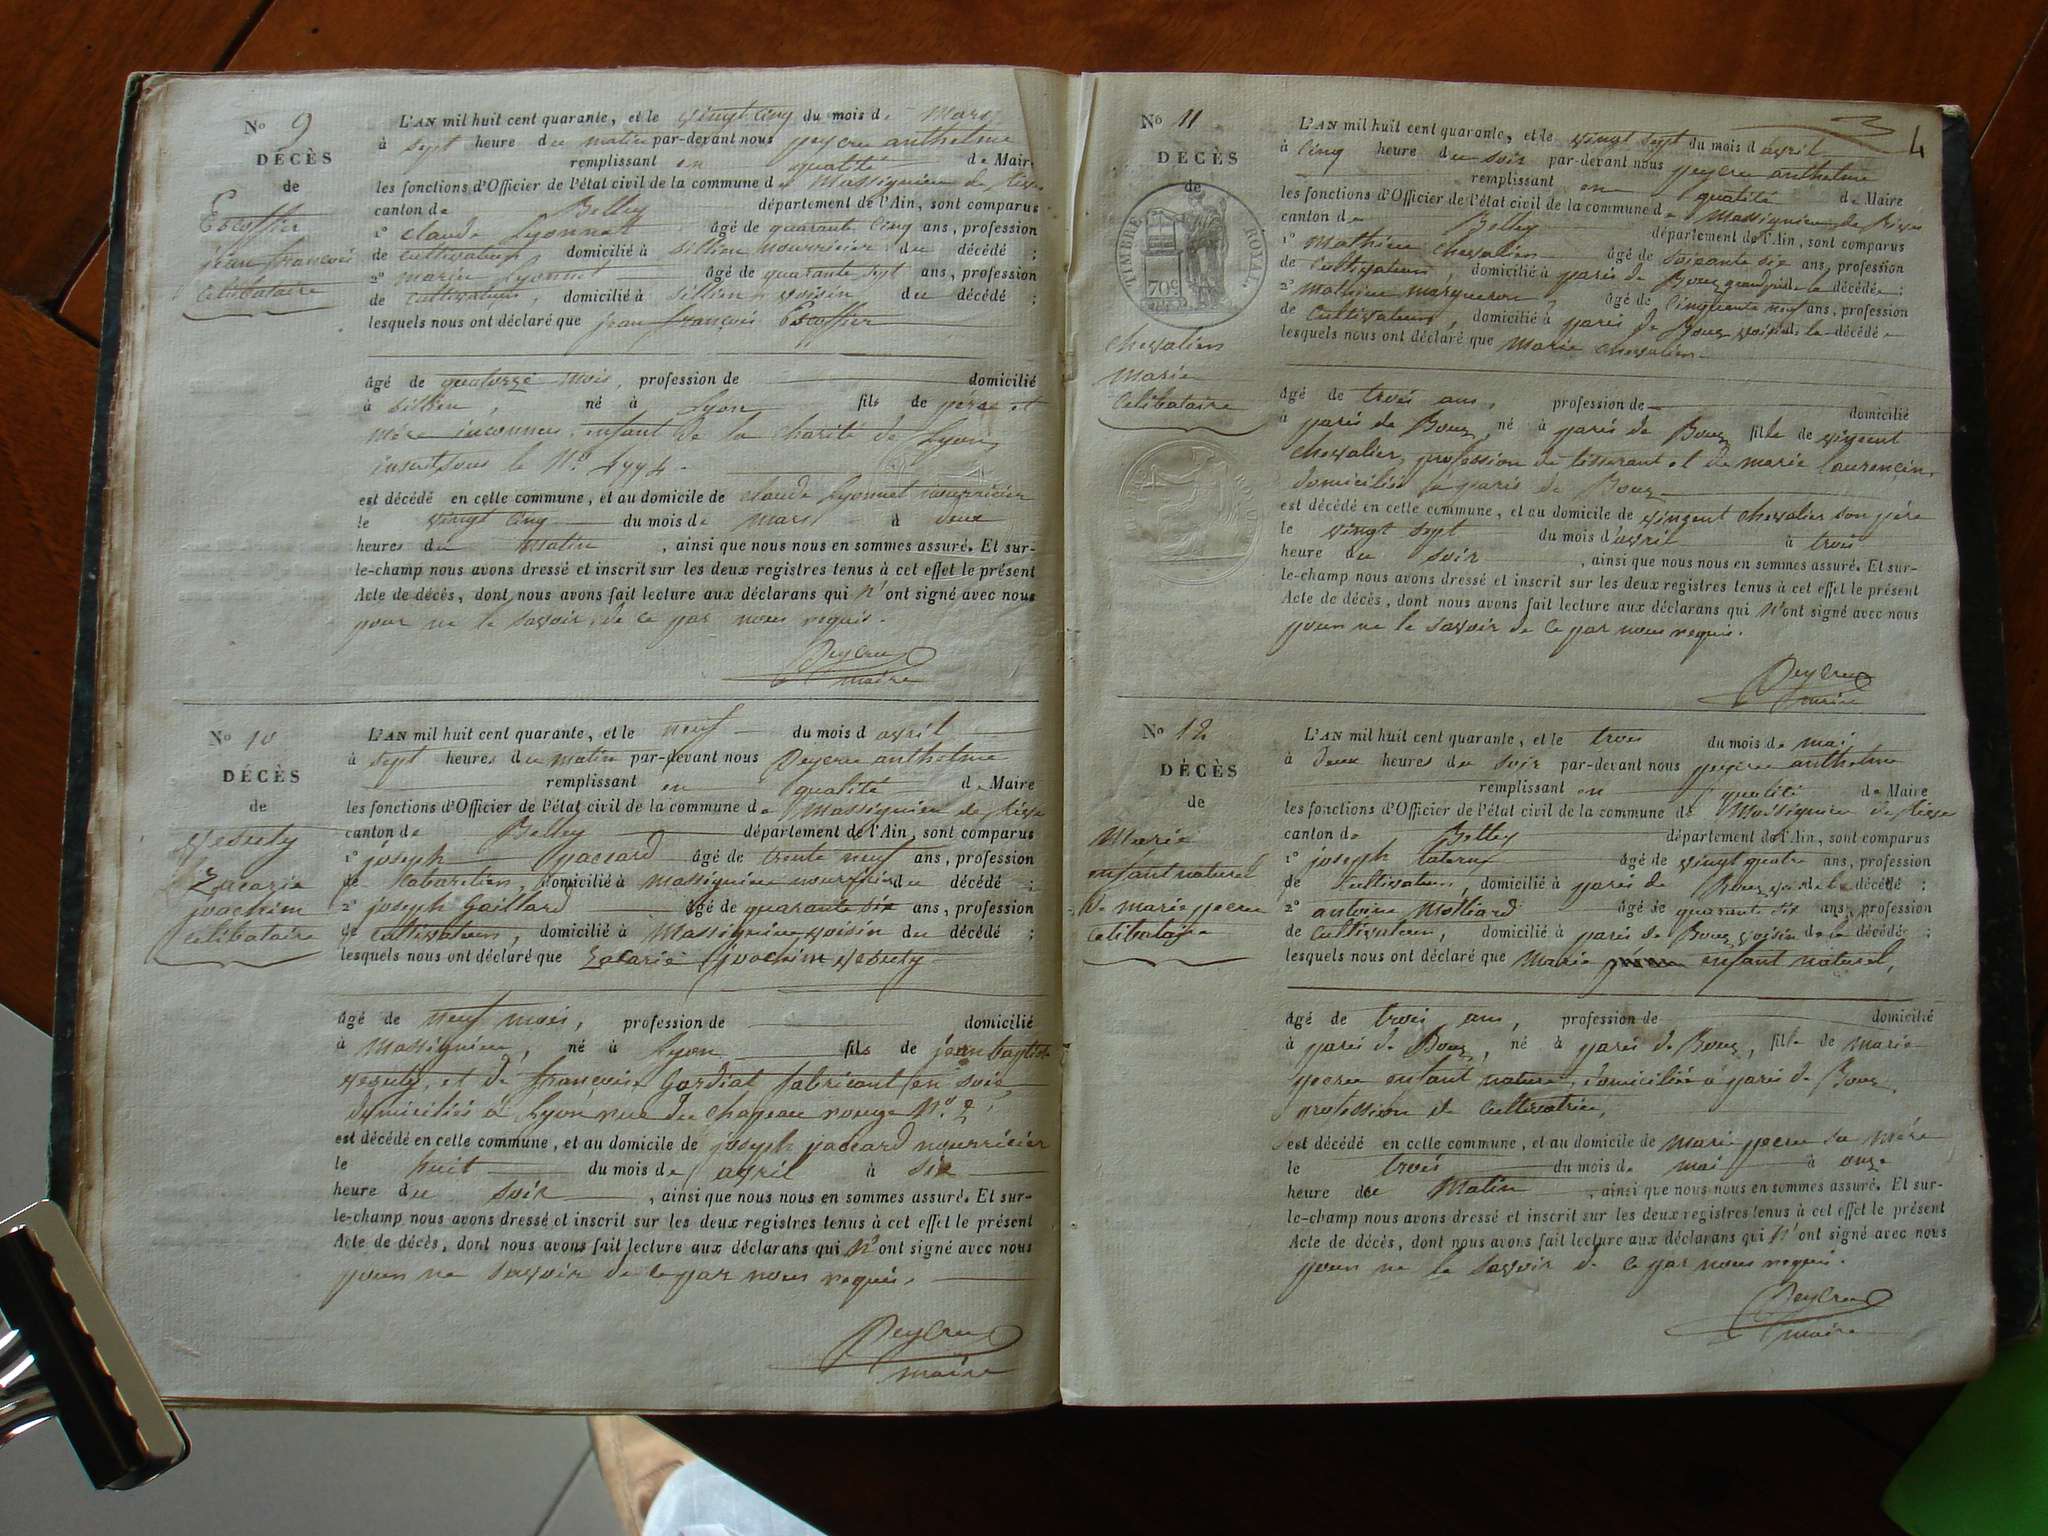 No 9
DÉCÈS
de
Escoffier
jean françois
celibataire
L'AN mil huit cent quarante, et le vingt cinq du mois de Mars
à sept heure du matin par-devant nous peycru anthelme
remplissant en qualité de Maire
les fonctions d'Officier de l'état civil de la commune de Massignieu de Rives
canton de Belley département de l'Ain, sont comparus
1o claude Lyonnet âgé de quarante cinq ans, profession
de cultivateur, domicilié à Sillien nourricier du décédé ;
2o marin Lyonnet âgé de quarante sept ans, profession
de cultivateur, domicilié à Sillien voisin du décédé ;
lesquels nous ont déclaré que jean françois Escoffier
âgé de quatorze mois, profession de domicilié
à Sillien, né à Lyon fils de père et
mère inconnus, enfant de la charité de Lyon,
inscrit sous le No
est décédé en cette commune, et au domicile de claude Lyonnet nourricier
le vingt cinq du mois de mars à deux
heures du Matin, ainsi que nous nous en sommes assuré. Et sur-
le-champ nous avons dressé et inscrit sur les deux registres tenus à cet effet le présent
Acte de décès, dont nous avons fait lecture aux déclarans qui n'ont signé avec nous
pour ne le savoir de ce par nous requis.
Peycru
maire
No 10
DÉCÈS
de
Zacarie
joachim
celibataire
L'AN mil huit cent quarante, et le neuf du mois d avril
à sept heures du matin par-devant nous Peycru anthelme
remplissant en qualité de Maire
les fonctions d'Officier de l'état civil de la commune de Massignieu de Rives
canton de Belley département de l'Ain, sont comparus
1o joseph paccard âgé de trente neuf ans, profession
de Cabaretier, domicilié à Massignieu nourricier du décédé ;
2o joseph Gaillard âgé de quarante six ans, profession
de cultivateur, domicilié à Massignieu voisin du décédé ;
lesquels nous ont déclaré que Zacarie joachim
âgé de neuf mois, profession de domicilié
à Massignieu, né à Lyon fils de jean baptiste
et de françoise Gordiat fabricant en soie
domiciliés à Lyon rue du chapeau rouge No 2
est décédé en cette commune, et au domicile de joseph paccard nourricier
le huit du mois de avril à six
heure du soir, ainsi que nous nous en sommes assuré. Et sur-
le-champ nous avons dressé et inscrit sur les deux registres tenus à cet effet le présent
Acte de décès, dont nous avons fait lecture aux déclarans qui n'ont signé avec nous
pour ne savoir de ce par nous requis.
Peycru
maire
4
No 11
DÉCÈS
de
TIMBRE ROYAL
709
chevalier
Marie
celibataire
L'AN mil huit cent quarante, et le vingt sept du mois d avril
à cinq heure du soir par-devant nous peycru anthelme
remplissant en qualité de Maire
les fonctions d'Officier de l'état civil de la commune de Massignieu de Rives
canton de Belley département de l'Ain, sont comparus
1o Mathieu chevalier âgé de soixante six ans, profession
de cultivateur, domicilié à paris de Bouz grand père de la décédée ;
2o Mathieu marqueron âgé de cinquante neuf ans, profession
de cultivateur, domicilié à paris de Bouz voisin de la décédée
lesquels nous ont déclaré que Marie chevalier
âgé de trois ans, profession de domicilié
à paris de Bouz, né à paris de Bouz fille de vinçent
chevalier, profession de tisserant et de marie laurençin,
domiciliés à paris de Bouz
est décédé en cette commune, et au domicile de vinçent chevalier son père
le vingt sept du mois d'avril à trois
heure du soir, ainsi que nous nous en sommes assuré. Et sur-
le-champ nous avons dressé et inscrit sur les deux registres tenus à cet effet le présent
Acte de décès, dont nous avons fait lecture aux déclarans qui n'ont signé avec nous
pour ne le savoir de ce par nous requis.
Peycru
maire
No 12
DÉCÈS
de
Marie
enfant naturel
de marie pecru
celibataire
L'AN mil huit cent quarante, et le trois du mois de mai
à deux heures du soir par-devant nous peycru anthelme
remplissant en qualité de Maire
les fonctions d'Officier de l'état civil de la commune de Massignieu de Rives
canton de Belley département de l'Ain, sont comparus
1o joseph âgé de vingt quatre ans, profession
de cultivateur, domicilié à paris de Bouz voisin de la décédé ;
2o antoine Molliard âgé de quarante six ans, profession
de cultivateur, domicilié à paris de Bouz voisin de la décédée ;
lesquels nous ont déclaré que Marie enfant naturel,
âgé de trois ans, profession de domicilié
à paris de Bouz, né à paris de Bouz, fille de marie
pecru enfant naturel, domiciliée à paris de Bouz,
profession de cultivatrice,
est décédé en cette commune, et au domicile de marie pecru sa mère
le trois du mois de mai à onze
heure de Matin, ainsi que nous nous en sommes assuré. Et sur-
le-champ nous avons dressé et inscrit sur les deux registres tenus à cet effet le présent
Acte de décès, dont nous avons fait lecture aux déclarans qui n'ont signé avec nous
pour ne le savoir de ce par nous requis.
Peycru
maire